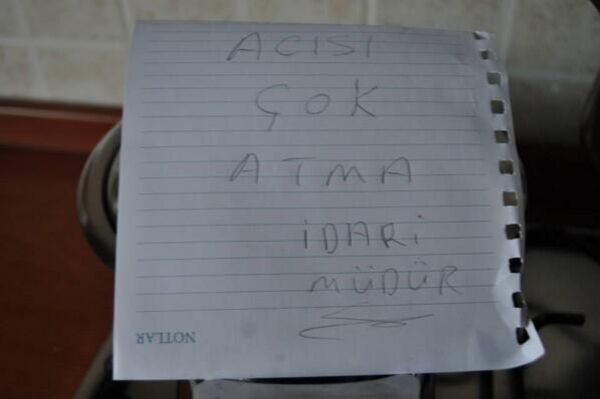 ACISI
ÇOK
ATMA
İDARİ
MÜDÜR
NOTLAR